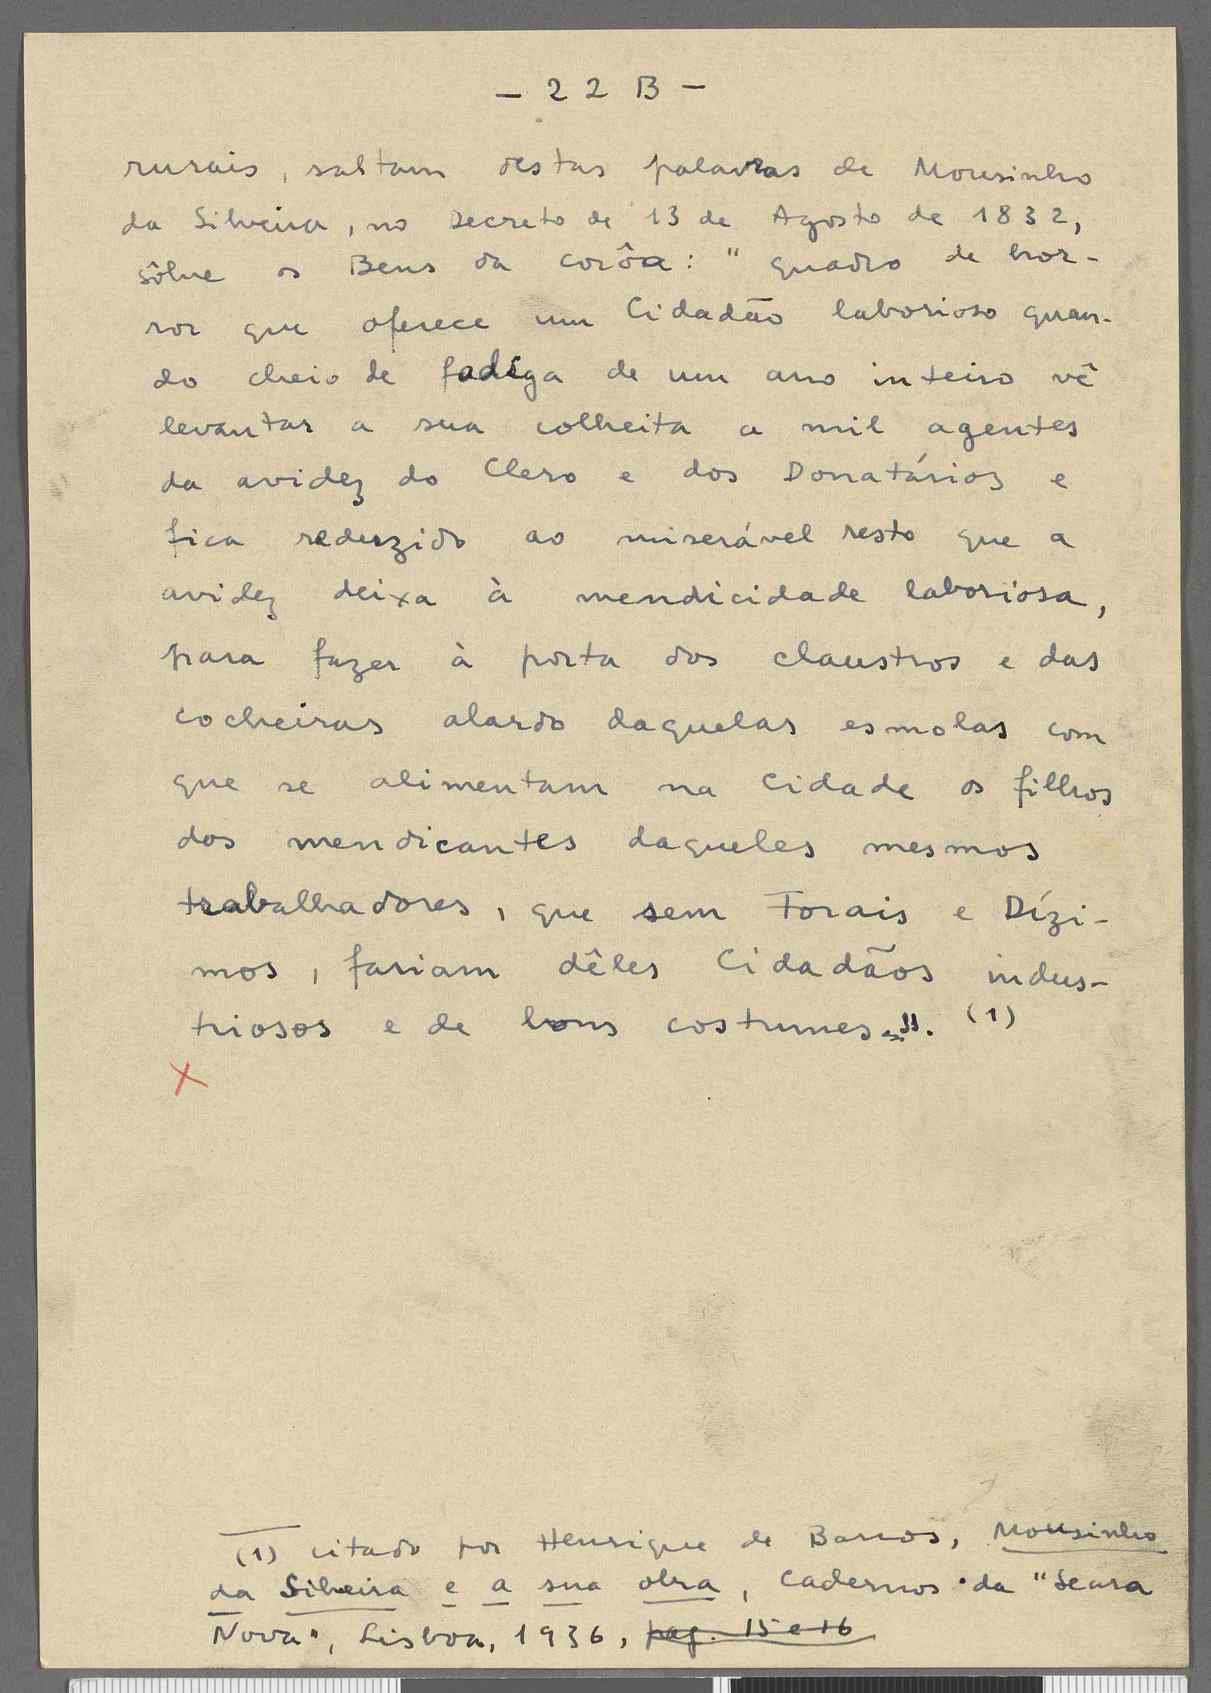 - 22 B -
rurais, saltam destas palavras de Mousinho
da Silveira, no Decreto de 13 de Agosto de 1832,
sôbre os Bens da corôa: " quadro de hor-
ror que oferece um Cidadão laborioso quan-
do cheio de fadiga de um ano inteiro vê
levantar a sua colheita a mil agentes
da avidez do Clero e dos Donatários e
fica reduzido ao miserável resto que a
avidez deixa à mendicidade laboriosa,
para fazer à porta dos claustros e das
cocheiras alardo daquelas esmolas com
que se alimentam na Cidade os filhos
dos mendicantes daqueles mesmos
trabalhadores, que sem Forais e Dízi-
mos, fariam dêles Cidadãos indus-
triosos e de bons costumes...". (1)
x
(1) citado por Henrique de Barros, Mousinho
da Silveira e a sua obra, Cadernos da "Seara
Nova", Lisboa, 1936, pag. 15 e 16